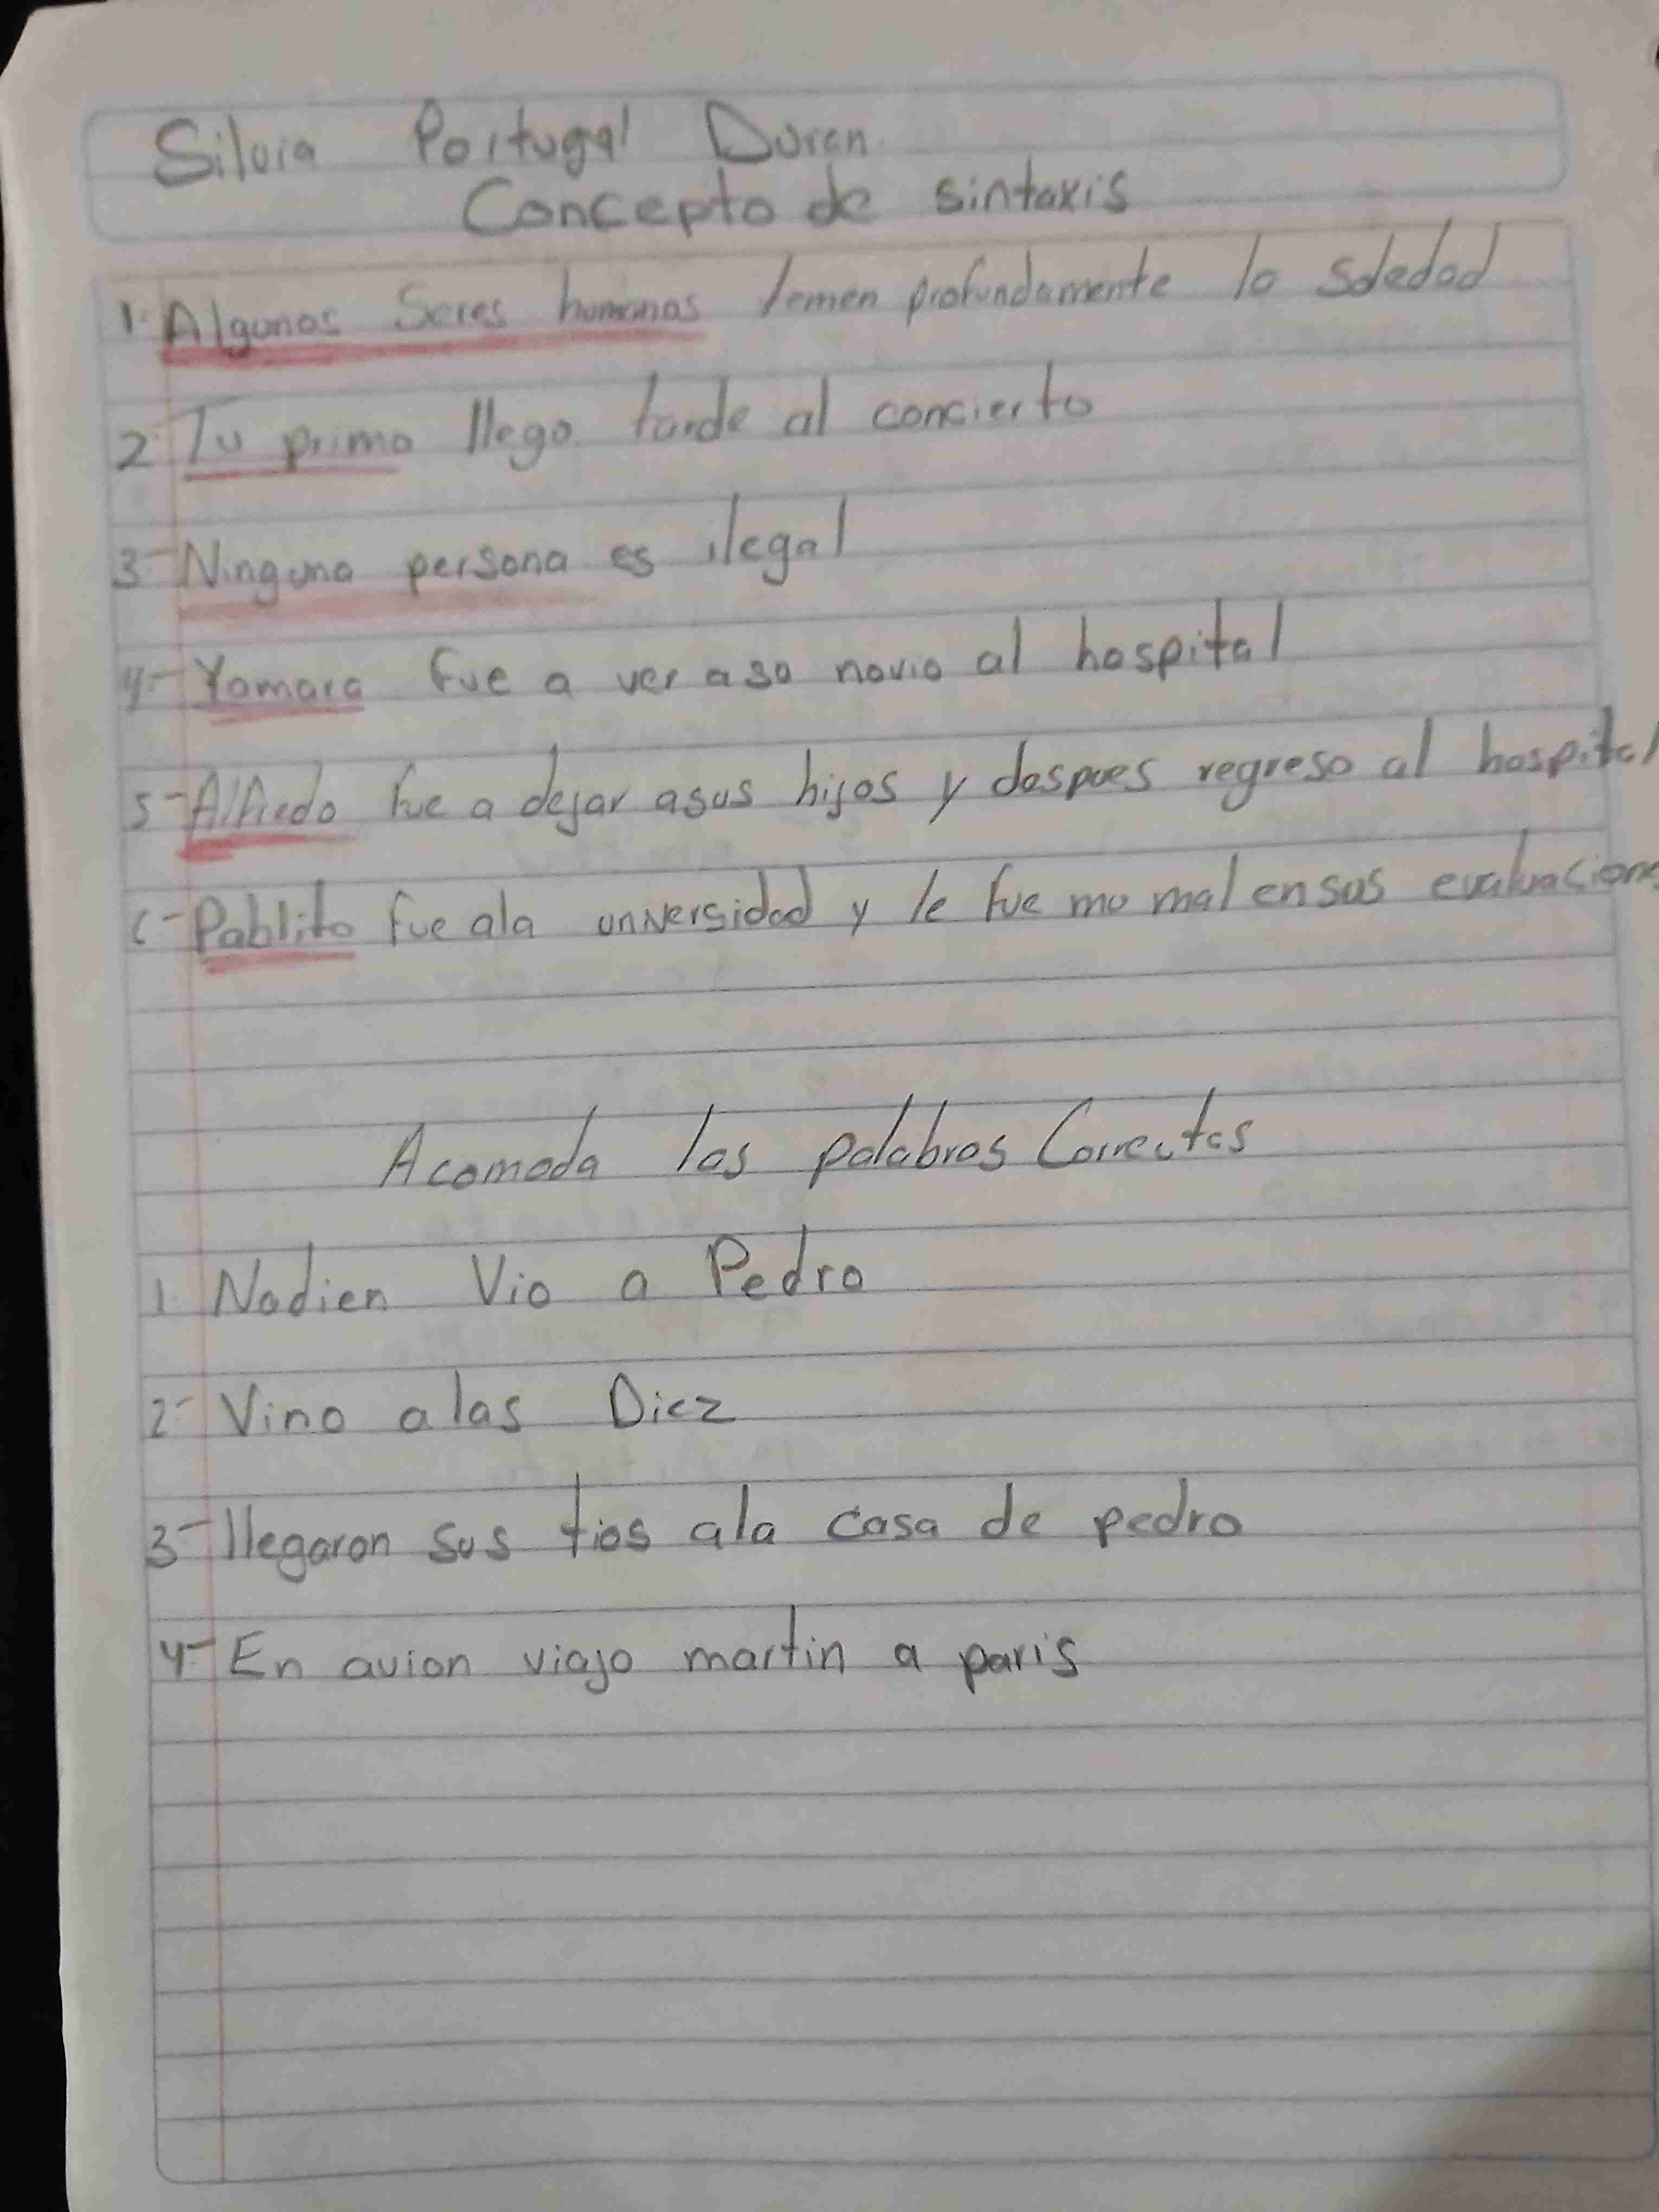 Silvia Portugal Duren
Concepto de sintaxis
1- Algunos Seres humanos temen profundamente la soledad
2- Tu primo llego tarde al concierto
3- Ninguna persona es ilegal
4- Yamara fue a ver a so novio al hospital
5- Alfredo fue a dejar asus hijos y despues regreso al hospital
6- Pablito fue ala universidad y le fue mu mal en sus evaluasiones
Acomoda las palabras Correctas
1. Nadien Vio a Pedro
2- Vino alas Diez
3- llegaron sus tios ala casa de pedro
4- En avion viajo martin a paris